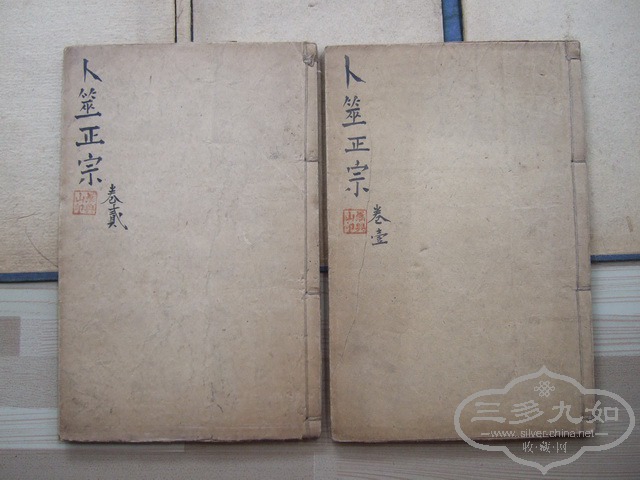 卜筮正宗
卷貳
卜筮正宗
卷壹
三多九如
www.silver-china.net
收·藏·网